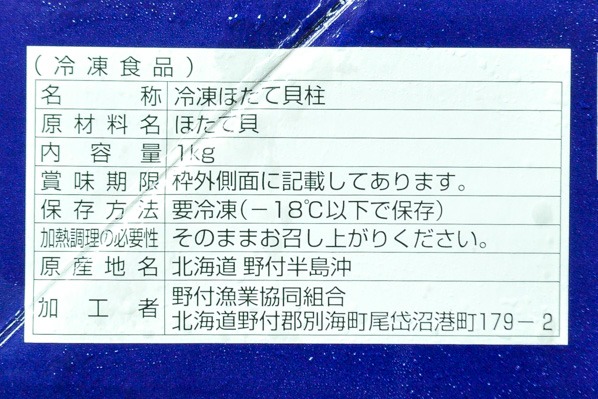 (冷凍食品)
名称 冷凍ほたて貝柱
原材料名 ほたて貝
内容量 1kg
賞味期限 枠外側面に記載してあります。
保存方法 要冷凍(-18℃以下で保存)
加熱調理の必要性 そのままお召し上がりください。
原産地名 北海道 野付半島沖
加工者 野付漁業協同組合
北海道野付郡別海町尾岱沼港町179-2